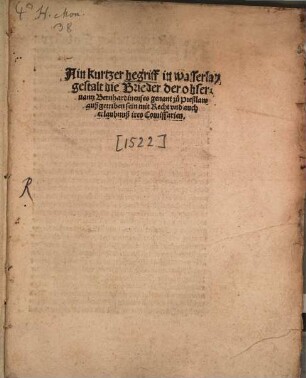 4° H. Mon.
38
Ain kurtzer begriff in wasserlay
gestalt die Brieder der obser-
uantz Bernhardineuses genant zů Presslaw
außgetriben sein mit Recht vnd auch
erlaubnuß irer Comissarien.
[1522]
R